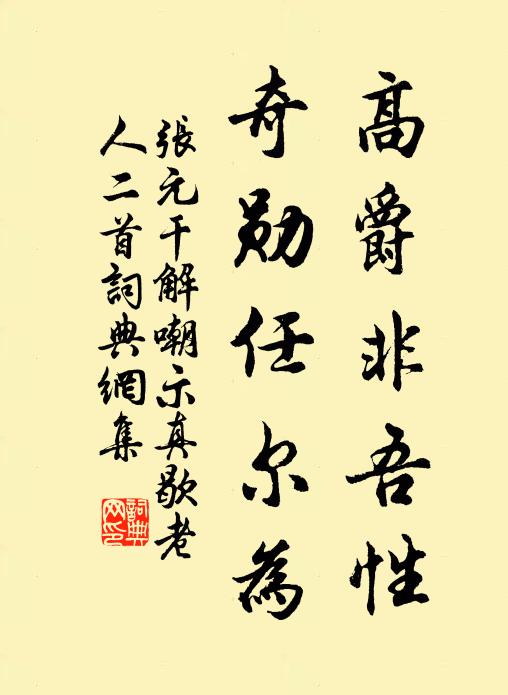 高爵非吾性
奇勋任尔為
張元干解嘲示真歇老
人二首詞典網集
詞典网印